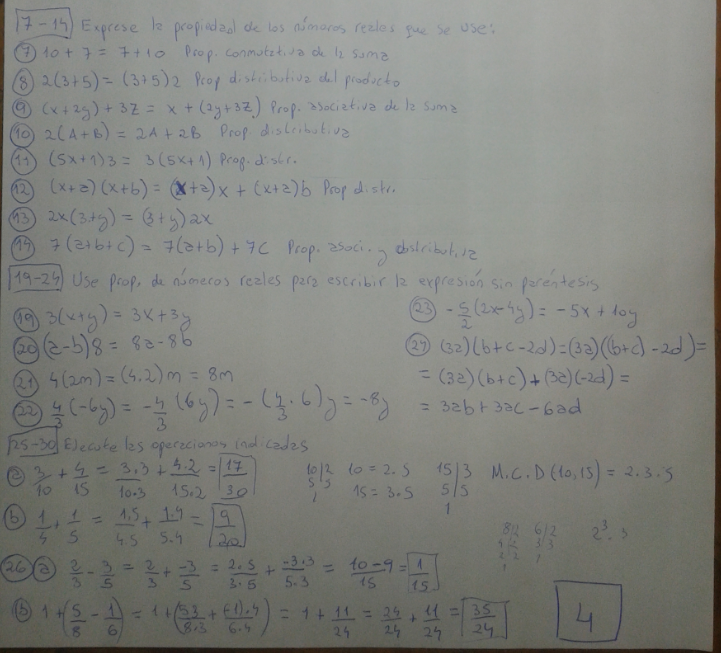 7-14 Exprese la propiedad de los números reales que se use:
7 10+7 = 7+10 Prop. conmutativa de la suma
8 2(3+5) = (3+5)2 Prop distributiva del producto
9 (x+2y)+3z = x+(2y+3z) Prop. asociativa de la suma
10 2(A+B) = 2A+2B Prop distributiva
11 (5x+1)3 = 3(5x+1) Prop. distr.
12 (x+a)(x+b) = (x+a)x + (x+a)b Prop distr.
13 2x(3+y) = (3+y)2x
14 7(a+b+c) = 7(a+b)+7c Prop. asoci. y distributiva
19-24 Use prop. de números reales para escribir la expresión sin paréntesis
19 3(x+y) = 3x+3y
20 (a-b)8 = 8a-8b
21 4(2m) = (4.2)m = 8m
22 4/3(-6y) = -4/3(6y) = -(4/3 . 6)y = -8y
23 -5/2(2x-4y) = -5x+10y
24 (3a)(b+c-2d) = (3a)((b+c)-2d) =
= (3a)(b+c)+(3a)(-2d) =
= 3ab+3ac-6ad
25-30 Ejecute las operaciones indicadas
a 3/10 + 4/15 = 3.3/10.3 + 4.2/15.2 = 17/30
10|2 10 = 2.5 15|3 M.C.D(10,15) = 2.3.5
5|5 15 = 3.5 5|5
1 1
b 1/4 + 1/5 = 1.5/4.5 + 1.4/5.4 = 9/20
8|2 6|2 2³.3
4|2 3|3
2|2 1
1
26 a 2/3 - 3/5 = 2/3 + -3/5 = 2.5/3.5 + -3.3/5.3 = 10-9/15 = 1/15
b 1+(5/8 - 1/6) = 1+(5.3/8.3 + (-1).4/6.4) = 1+11/24 = 24/24 + 11/24 = 35/24
4